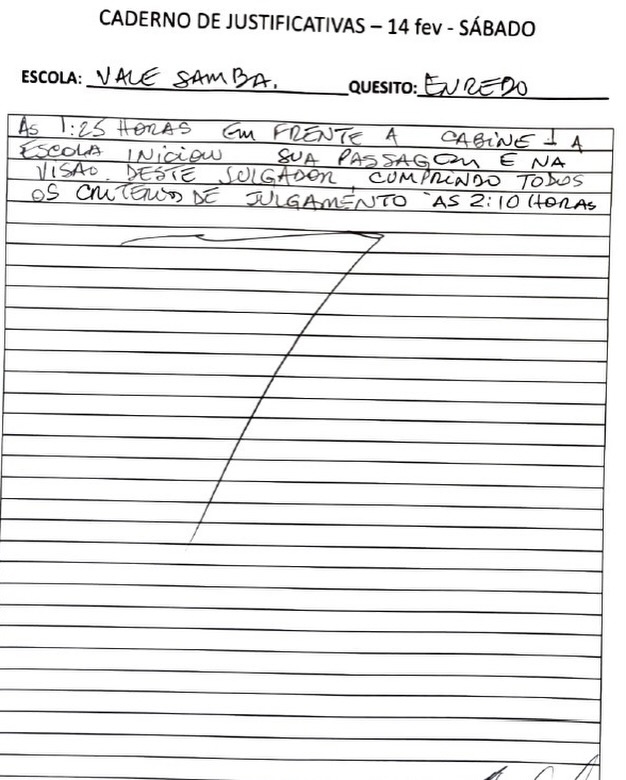 CADERNO DE JUSTIFICATIVAS – 14 fev - SÁBADO
ESCOLA: VALE SAMBA. QUESITO: ENREDO
AS 1:25 HORAS EM FRENTE A CABINE 1 A
ESCOLA INICIOU SUA PASSAGEM E NA
VISÃO DESTE JULGADOR, CUMPRINDO TODOS
OS CRITERIOS DE JULGAMENTO AS 2:10 HORAS